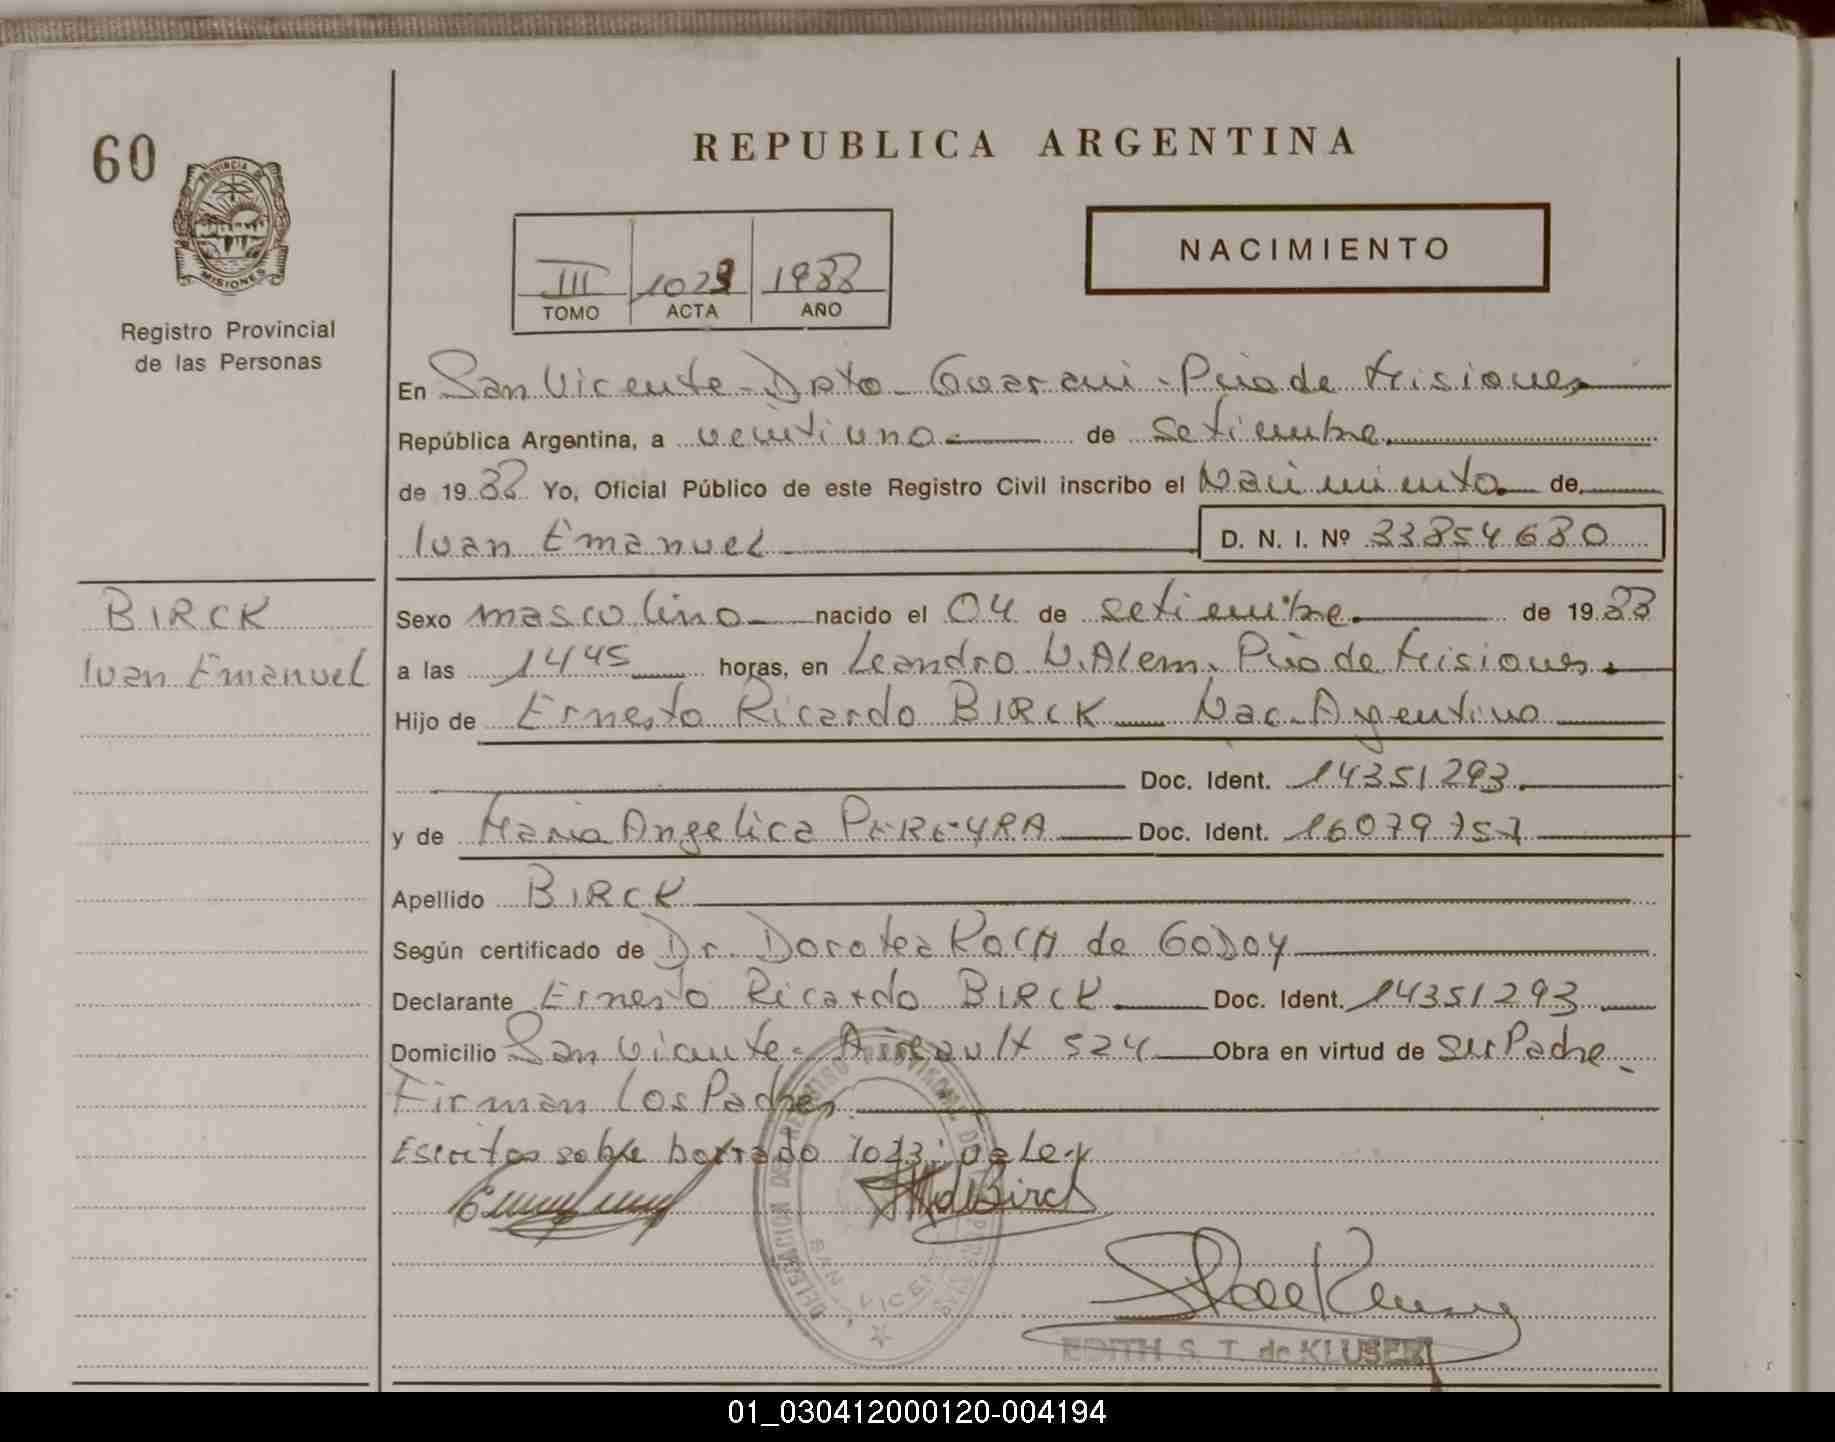 60
PROVINCIA DE
MISIONES
Registro Provincial
de las Personas
REPUBLICA ARGENTINA
III 1023 1988
TOMO ACTA AÑO
NACIMIENTO
En San Vicente - Dpto - Guarani - Pcia de Misiones
República Argentina, a veintiuno de setiembre
de 1988 Yo, Oficial Público de este Registro Civil inscribo el Nacimiento de
Ivan Emanuel D. N. I. Nº 33854680
BIRCK
Ivan Emanuel
Sexo masculino nacido el 04 de setiembre de 1988
a las 1445 horas, en Leandro N. Alem. Pcia de Misiones.
Hijo de Ernesto Ricardo BIRCK Nac. Argentino
Doc. Ident. 14351293
y de Maria Angelica PEREYRA Doc. Ident. 16079757
Apellido BIRCK
Según certificado de Dr. Dorotea Roch de GODOY
Declarante Ernesto Ricardo BIRCK Doc. Ident. 14351293
Domicilio San Vicente - 524 Obra en virtud de su Padre
Firman Los Padres
Escritos sobre borrado 1023: vale
DELEGACION DEL REGISTRO PROVINCIAL DE
SAN VICENTE
EDITH S. T. de KLUSER
01_030412000120-004194